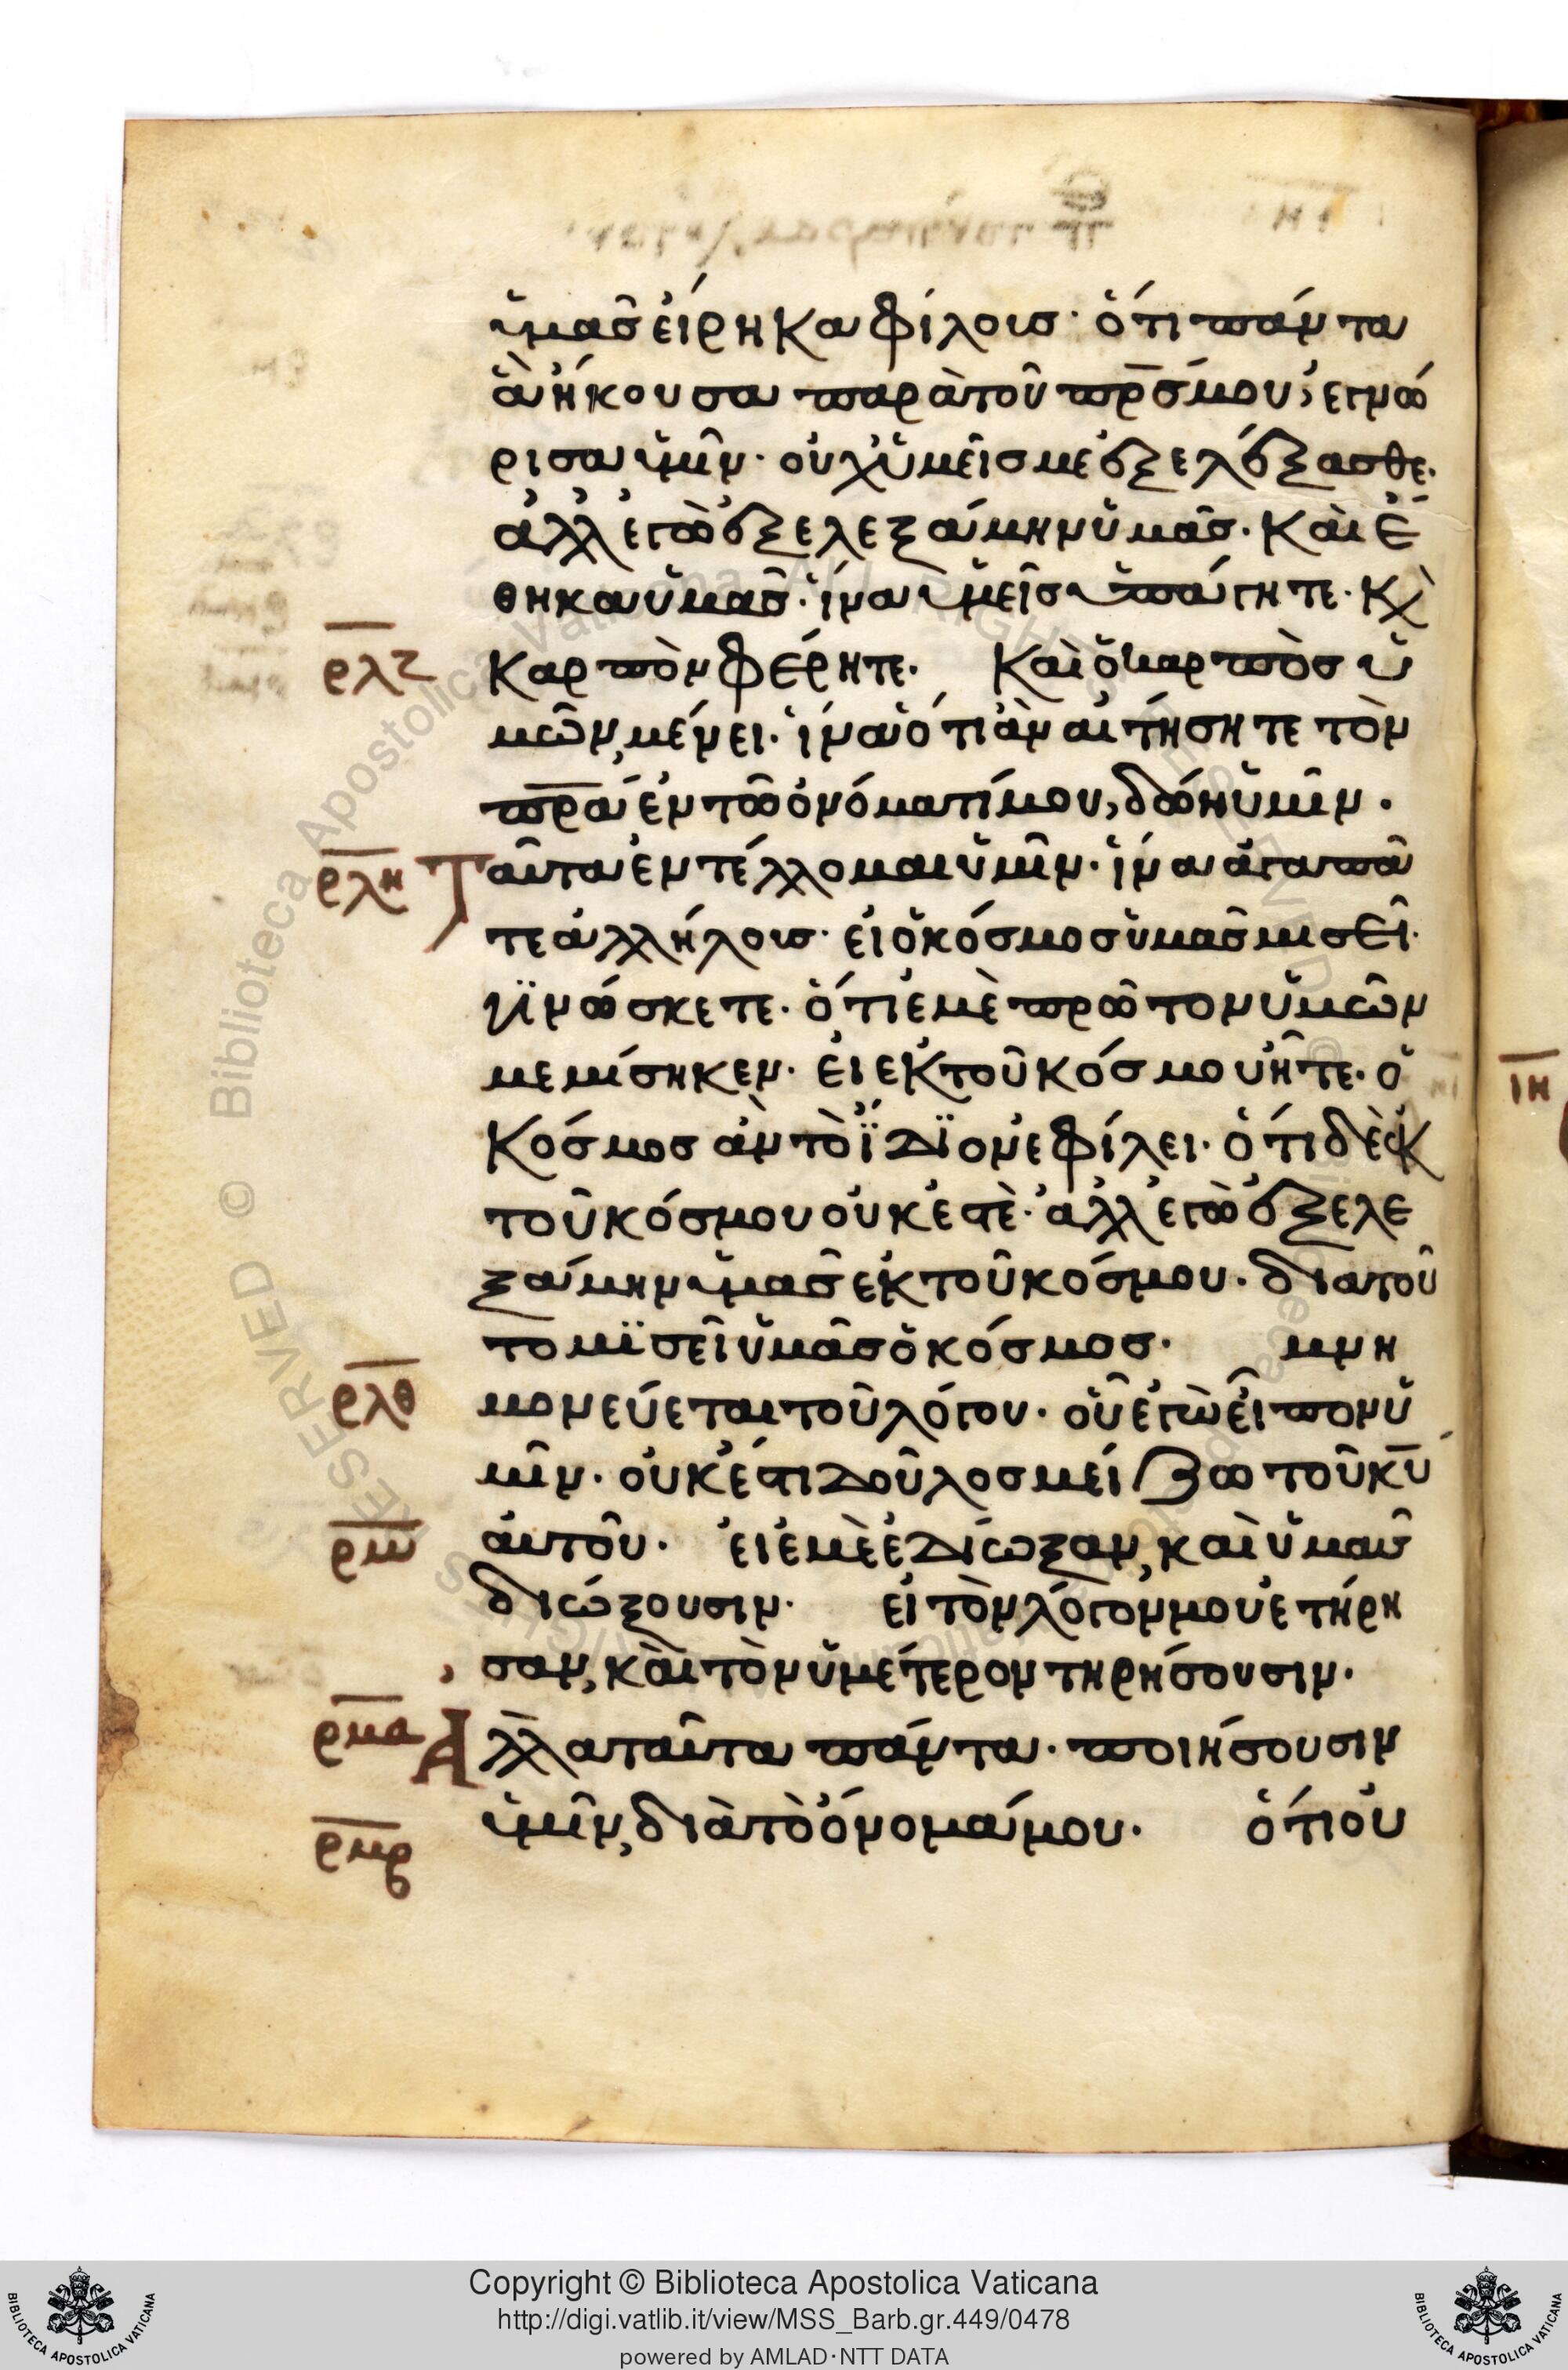 ὑμᾶς εἴρηκα φίλους· ὅτι πάντα
ἃ ἤκουσα παρὰ τοῦ πρ̅ς μου, ἐγνώ
ρισα ὑμῖν· οὐχ ὑμεῖς με ἐξελέξασθε·
ἀλλ' ἐγὼ ἐξελεξάμην ὑμᾶς· καὶ ἔ
θηκα ὑμᾶς· ἵνα ὑμεῖς ὑπάγητε· κ̀
ρλζ καρπὸν φέρητε· καὶ ὁ καρπὸς ὑ
μῶν, μένει· ἵνα ὅτι ἂν αἰτήσητε τὸν
πρ̅α ἐν τῶ ὀνόματί μου, δώη ὑμῖν·
ρλη Ταῦτα ἐντέλλομαι ὑμῖν· ἵνα ἀγαπᾶ
τε ἀλλήλους· εἰ ὁ κόσμος ὑμᾶς μισεῖ·
γϊνώσκετε· ὅτι ἐμὲ πρῶτον ὑμῶν
μεμίσηκεν· εἰ ἐκ τοῦ κόσμου ἦτε· ὁ
κόσμος ἂν τὸ ἴδϊον ἐφίλει· ὅτι δὲ ἐκ
τοῦ κόσμου οὐκ ἐστὲ· ἀλλ' ἐγὼ ἐξελε
ξάμην ὑμᾶς ἐκ τοῦ κόσμου· διατοῦ
το μϊσεῖ ὑμᾶς ὁ κόσμος· μνη
ρλθ μονεύεται τοῦ λόγου· οὗ ἐγὼ εἶπον ὑ
μῖν· οὐκ ἔστι δοῦλος μείζω τοῦ κ̅υ
ρμ αὐτοῦ· εἰ ἐμὲ ἐδίωξαν, καὶ ὑμᾶς
διώξουσιν· εἰ τὸν λόγον μου ἐτήρη
σαν, καὶ τὸν ὑμέτερον τηρήσουσιν·
ρμα Ἀλλὰ ταῦτα πάντα· ποιήσουσιν
ὑμῖν, διὰ τὸ ὄνομά μου· ὅτι οὐ
ρμβ
ιη
Copyright © Biblioteca Apostolica Vaticana
http://digi.vatlib.it/view/MSS_Barb.gr.449/0478
powered by AMLAD·NTT DATA